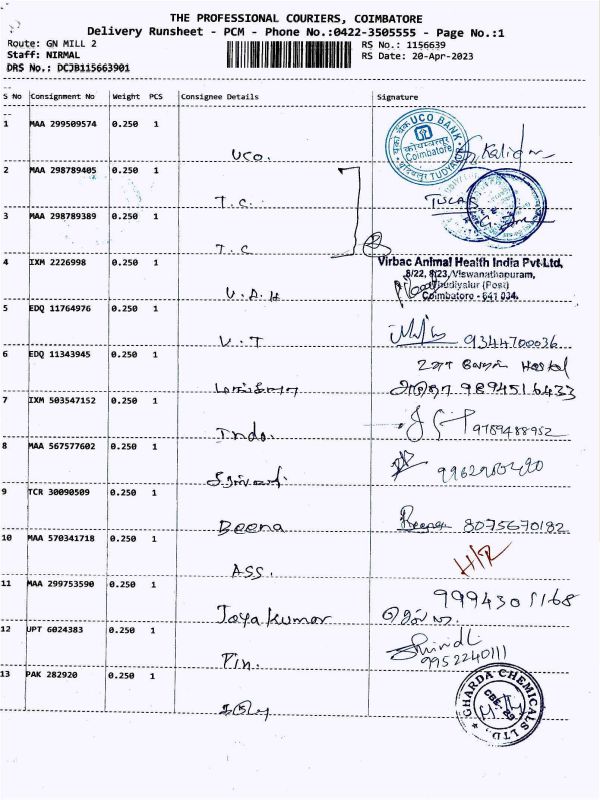 THE PROFESSIONAL COURIERS, COIMBATORE
Delivery Runsheet - PCM - Phone No.:0422-3505555 - Page No.:1
Route: GN MILL 2
RS No.: 1156639
Staff: NIRMAL
RS Date: 20-Apr-2023
DRS No.: DCJB115663901
S No Consignment No Weight PCS Consignee Details Signature
1 MAA 299509574 0.250 1
UCO BANK
Coimbatore
UCO.
2 MAA 298789405 0.250 1
T.C.
3 MAA 298789389 0.250 1
T.C
4 IXM 2226998 0.250 1
Virbac Animal Health India Pvt Ltd,
8/22, 8/23, Viswanathapuram,
Thudiyalur (Post)
Coimbatore - 641 034.
V.A.H
5 EDQ 11764976 0.250 1
V.T 9344700036
6 EDQ 11343945 0.250 1
Hostel
9894516433
7 IXM 503547152 0.250 1
Indo. 9789488952
8 MAA 567577602 0.250 1
9 TCR 30090509 0.250 1
Beena 8075670182
10 MAA 570341718 0.250 1
H/R
ASS.
11 MAA 299753590 0.250 1
9994301168
Jayakumar
12 UPT 6024383 0.250 1
Pin.
9952240111
13 PAK 282920 0.250 1
GHARDA CHEMICALS LTD.